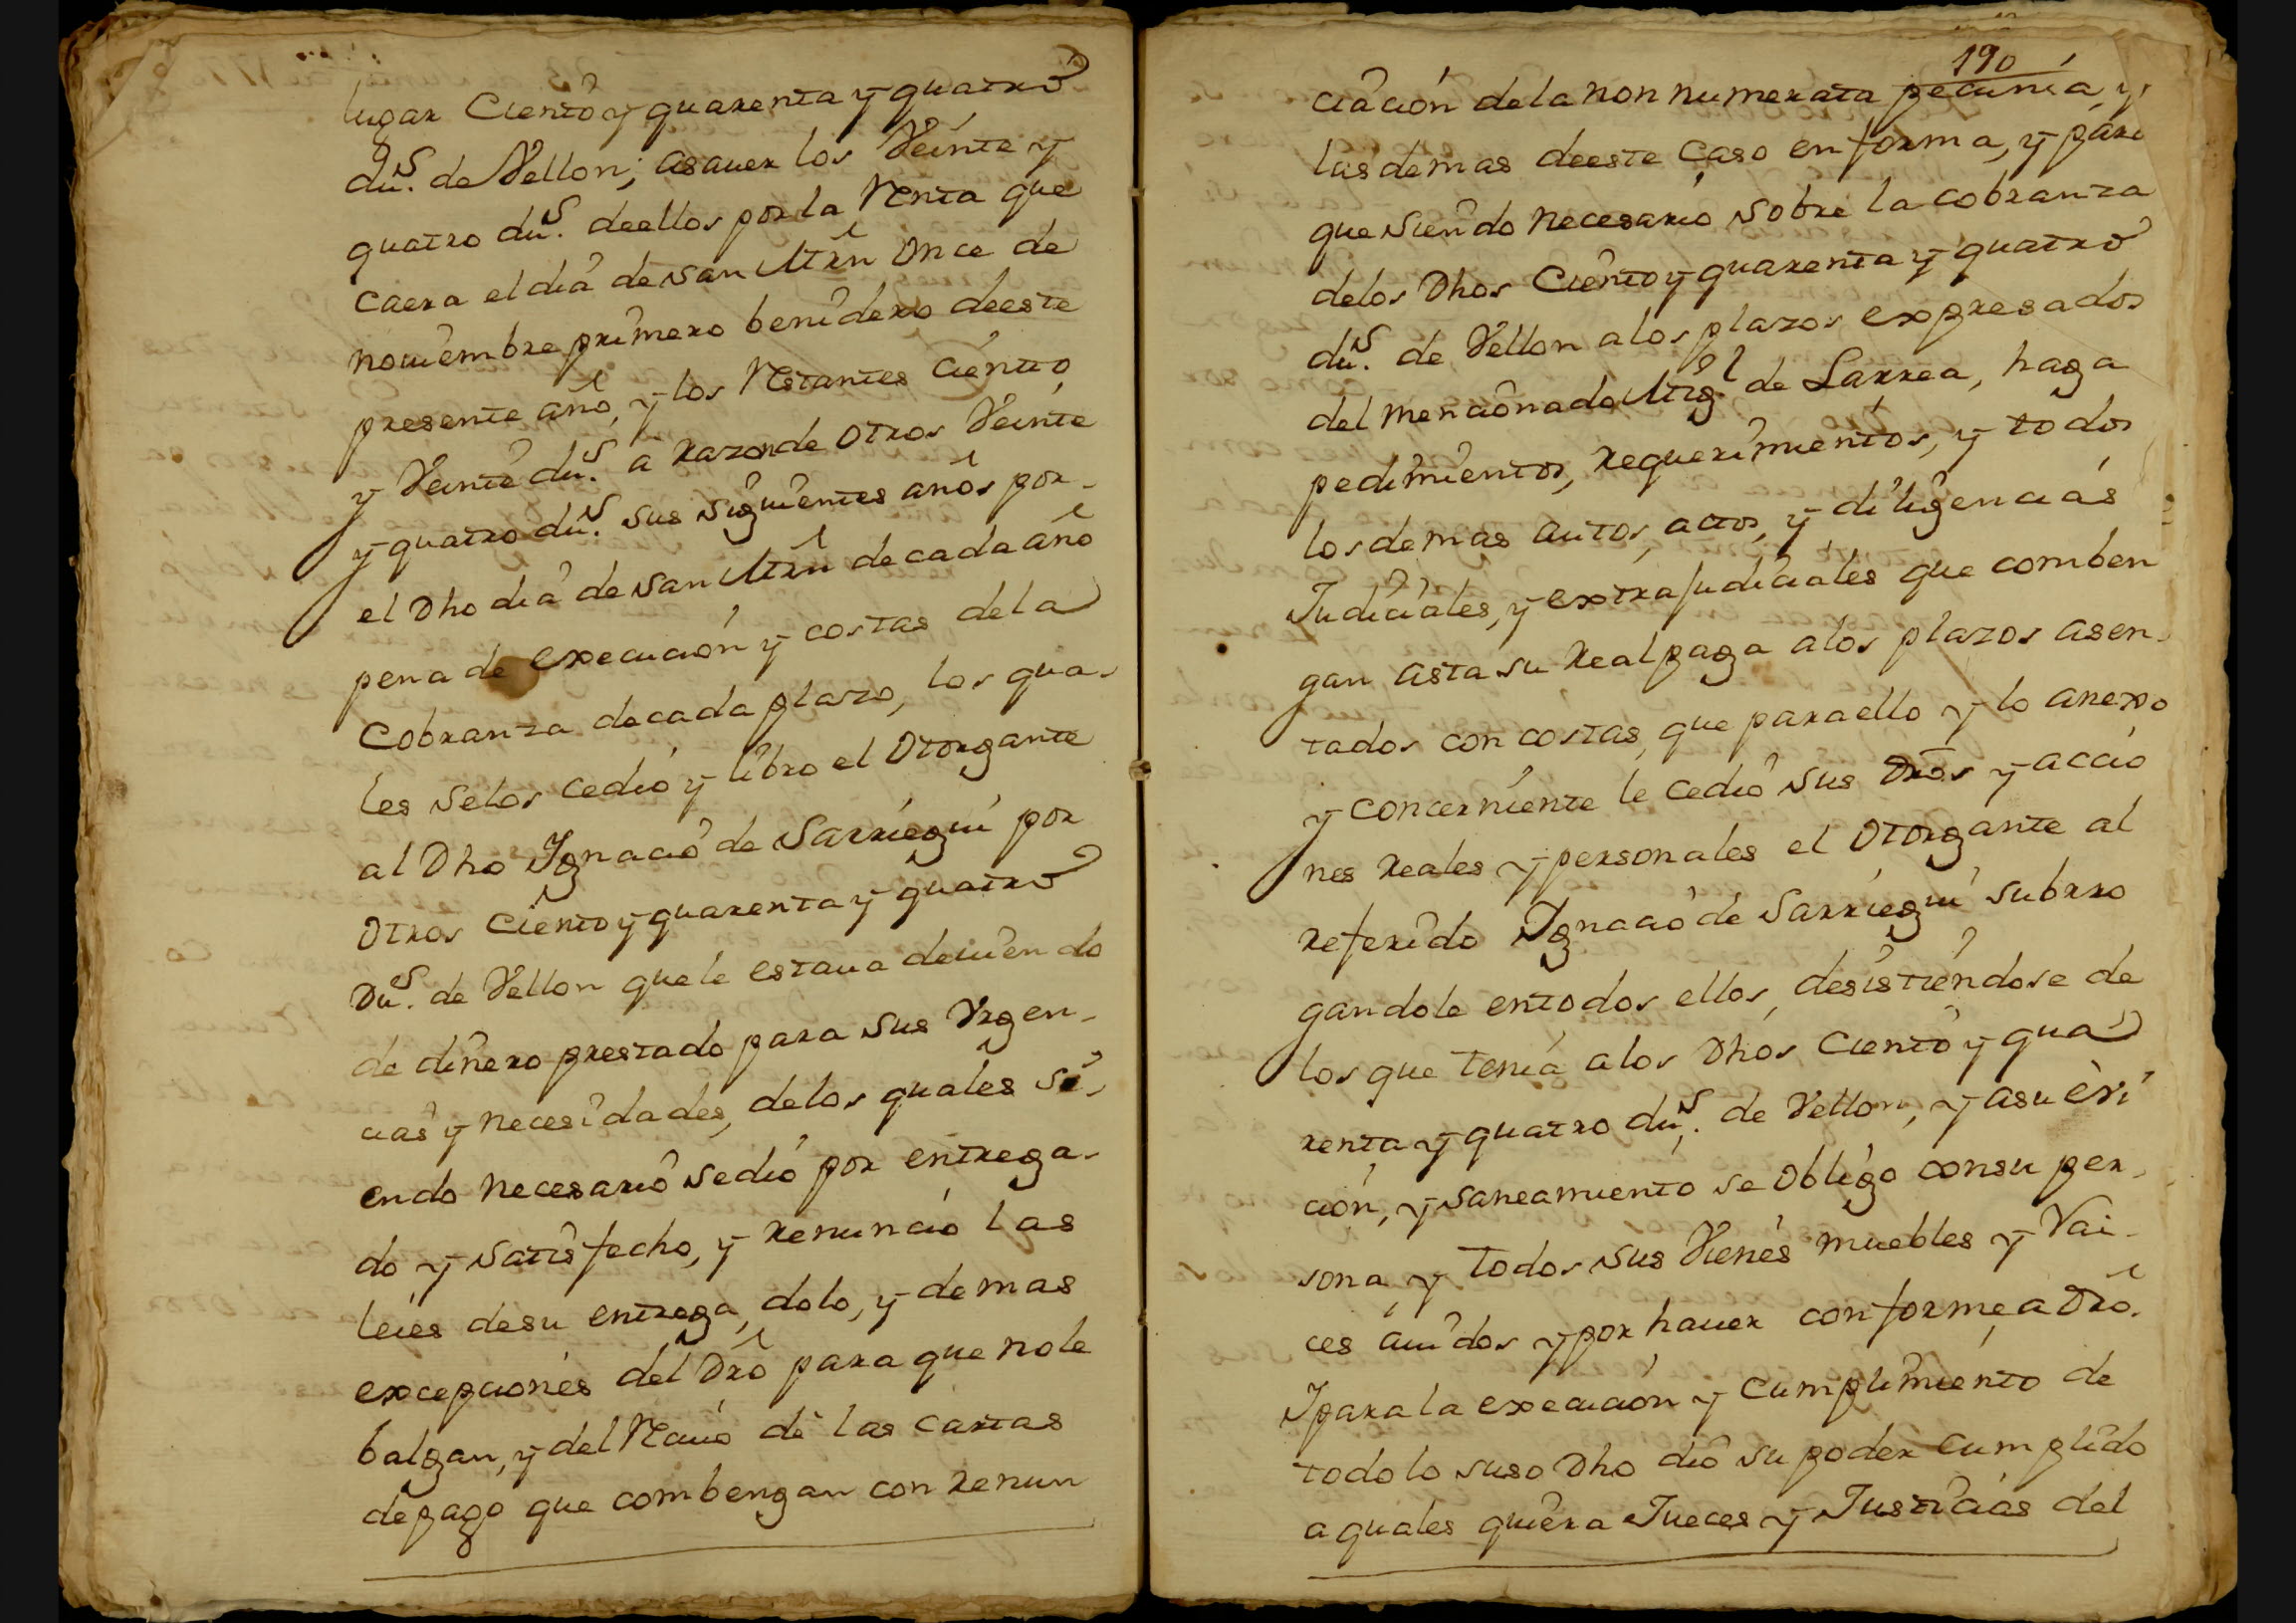 lugar Ciento y quarenta y quatro
du.s de Vellon; asauer los Veinte y
quatro du.s deellos por la Renta que
caera el dia de san Mrn Once de
nouiembre primero benidero deeste
presente año, y los Restantes ciento
y Veinte du.s a razon de otros Veinte
y quatro du.s sus siguientes años por
el Dho dia de san Mrn de cada año
pena de execucion y costas de la
Cobranza de cada plazo, los qua-
les se los cedio y libro el Otorgante
al Dho Ignacio de Sarriegui por
Otros Ciento y quarenta y quatro
Du.s de Vellon que le estaua deuiendo
de dinero prestado para sus Vrgen-
cias y necesidades, de los quales si-
endo necesario se dio por entrega-
do y satisfecho, y renuncio las
leies de su entrega, dolo, y demas
excepciones del Dro para que no le
balgan, y del Reciuo de las cartas
de pago que combengan con renun
190
ciacion de la non numerata pecunia, y
las demas deeste caso en forma, y para
que siendo necesario sobre la cobranza
de los Dhos Ciento y quarenta y quatro
du.s de Vellon a los plazos expresados
del mencionado Mrg.l de Larrea, haga
pedimientos, requerimientos, y todos
los demas autos, actos, y diligencias
Judiciales, y extrajudiciales que comben
gan asta su real paga a los plazos asen-
tados con costas, que para ello y lo anexo
y concerniente le cedio sus Dros y accio
nes reales y personales el Otorgante al
referido Ignacio de Sarriegui subrro
gandole en todos ellos, desistiendose de
los que tenia a los Dhos Ciento y qua
renta y quatro du.s de Vellon, y a su evi
cion, y saneamiento se Obligo con su per-
sona y todos sus Vienes muebles y Rai-
ces auidos y por hauer conforme a Dro.
Y para la execucion y cumplimiento de
todo lo suso Dho dio su poder cumplido
a quales quiera Jueces y Justicias del